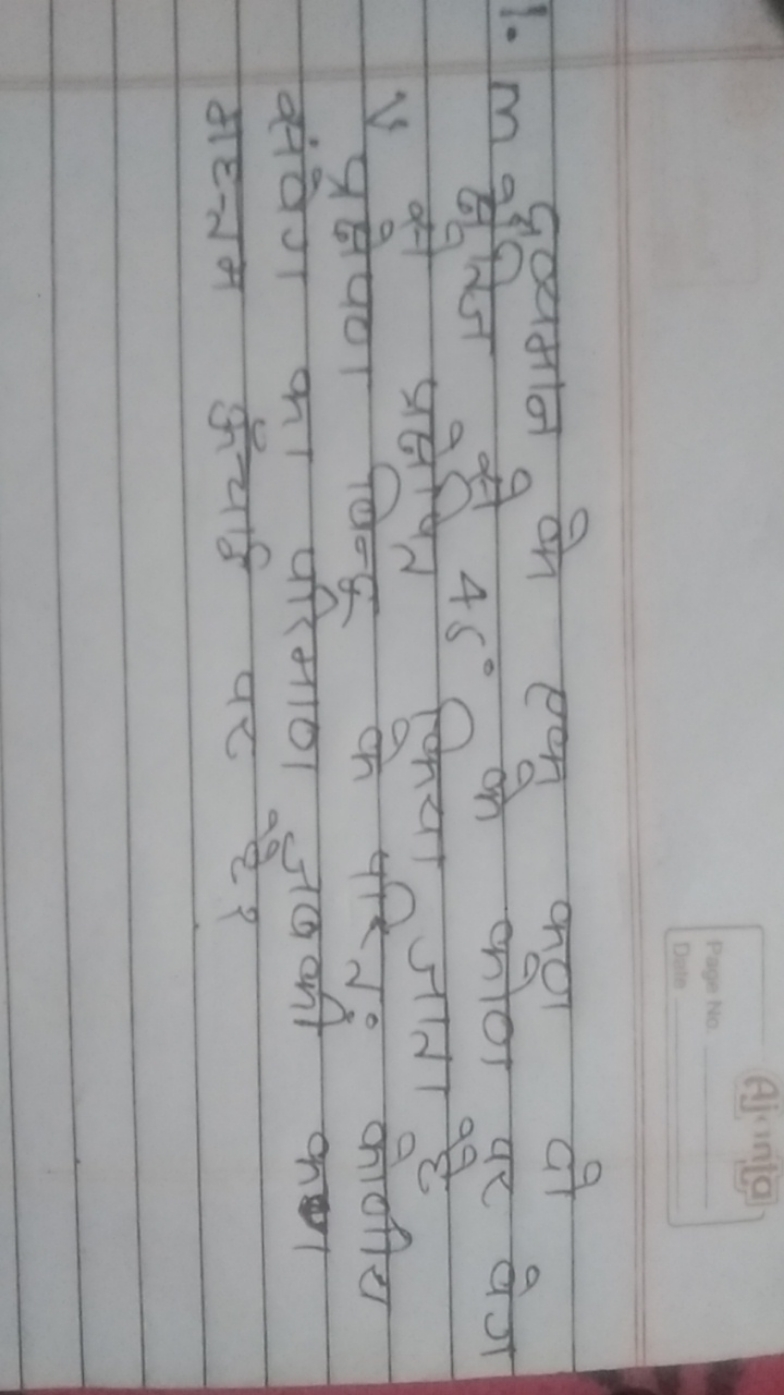 Ajanta
Page No.
Date
1. m द्रव्यमान के एक कण को
क्षैतिज से 45° के कोण पर वेग
v से प्रक्षेपित किया जाता है
प्रक्षेपण बिन्दु के परितः कोणीय
संवेग का परिमाण जबकी कण
महत्तम ऊँचाई पर है?